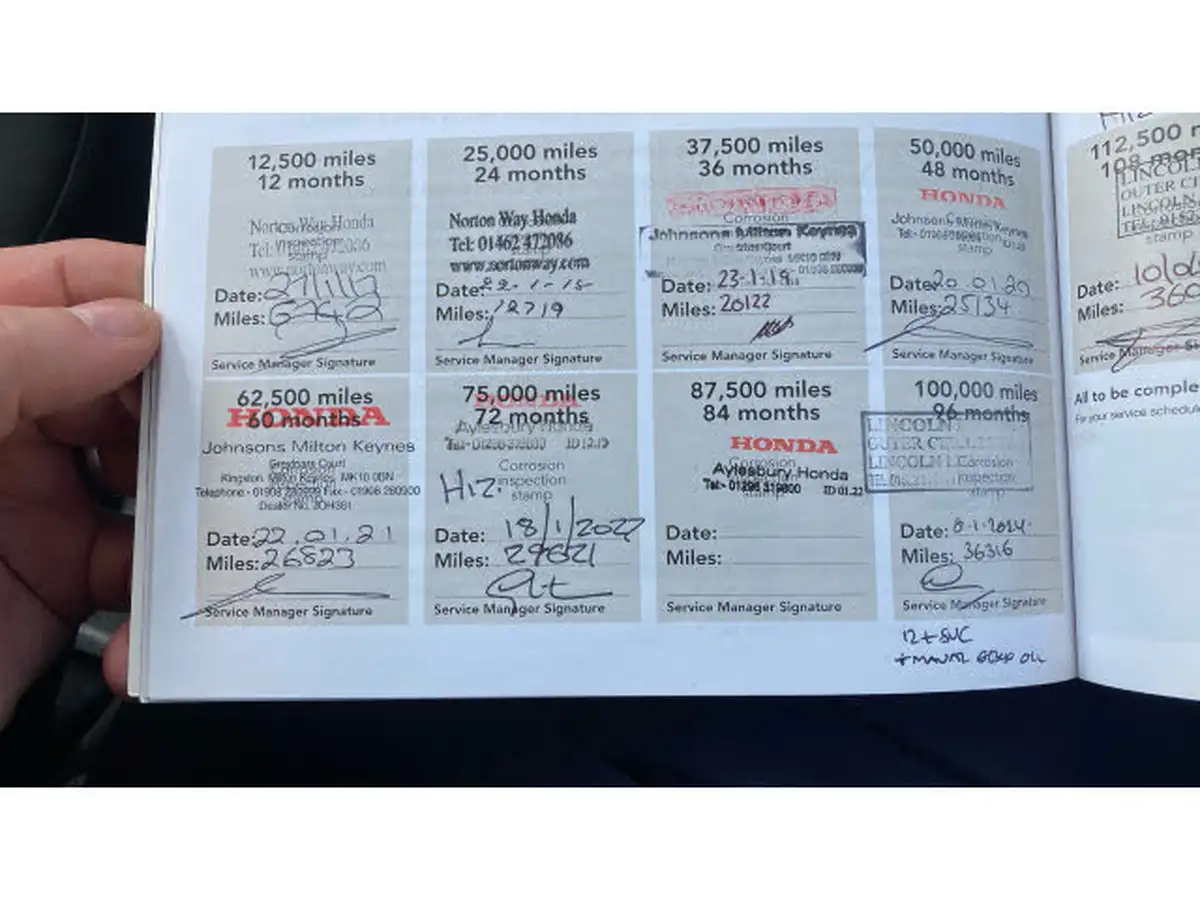 12,500 miles
12 months
Norton Way Honda
www.nortonway.com
Date: 27/1/17
Miles:
Service Manager Signature
25,000 miles
24 months
Norton Way Honda
Tel: 01462 472086
www.nortonway.com
Date: 22-1-18
Miles: 12719
Service Manager Signature
37,500 miles
36 months
Corrosion
Johnsons Milton Keynes
Date: 23-1-19
Miles: 20122
Service Manager Signature
50,000 miles
48 months
HONDA
Johnsons Milton Keynes
stamp
Date: 20.01.20
Miles: 25134
Service Manager Signature
62,500 miles
60 months
HONDA
Johnsons Milton Keynes
Greyfriars Court
Kingston, Milton Keynes, MK10 0BN
Date: 22.01.21
Miles: 26823
Service Manager Signature
75,000 miles
72 months
HONDA
Aylesbury Honda
Corrosion
inspection
stamp
Date: 18/1/2022
Miles: 29621
Service Manager Signature
87,500 miles
84 months
HONDA
Corrosion
Aylesbury Honda
Tel:- 01296 319800 ID 01.22
stamp
Date:
Miles:
Service Manager Signature
100,000 miles
96 months
LINCOLN
Corrosion
inspection
stamp
Date: 8.1.2024.
Miles: 36316
Service Manager Signature
12+ SVC
+ MANUAL GEARBOX OIL
112,500
108
LINCOL
OUTER CI
LINCOLN
stamp
Date:
Miles:
Service Manager
All to be comple
For your service schedul